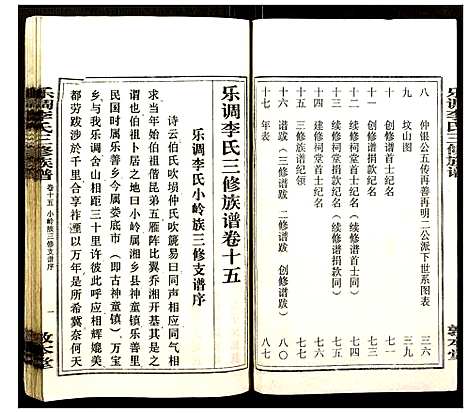 乐调李氏三修族谱
八 仲银公五传再善再明二公派下世系图表 三六
九 坟山图 三九
十 创修谱首纪名
十一 创修谱捐款纪名
十二 续修谱首士纪名（续修谱首士同）
十三 续修谱捐款纪名（续修谱捐款同）
十四 建修祠堂首士纪名
十五 三修族谱纪领
十六 谱跋（三修谱跋 二修谱跋 创修谱跋） 八〇
十七 年表 八七
敦本堂
乐调李氏三修族谱卷十五
乐调李氏小岭族三修支谱序
诗云伯氏吹埙仲氏吹篪易曰同声相应同气相
求当年始祖伯偕昆弟五雁阵比翼乔湘开基其是之
谓也卯伯祖卜居之地小岭属湘乡县神童镇乐善里
民国时属乐善乡今属娄底市（即古神童镇）万宝
乡我与乐调合山相距二三十里许彼此呼应相辉媲美
都劳跋涉於千里合享祚溉以万年是所希冀奈何天
乐调李氏三修族谱
卷十五 小岭族三修支谱序
一
敦本堂